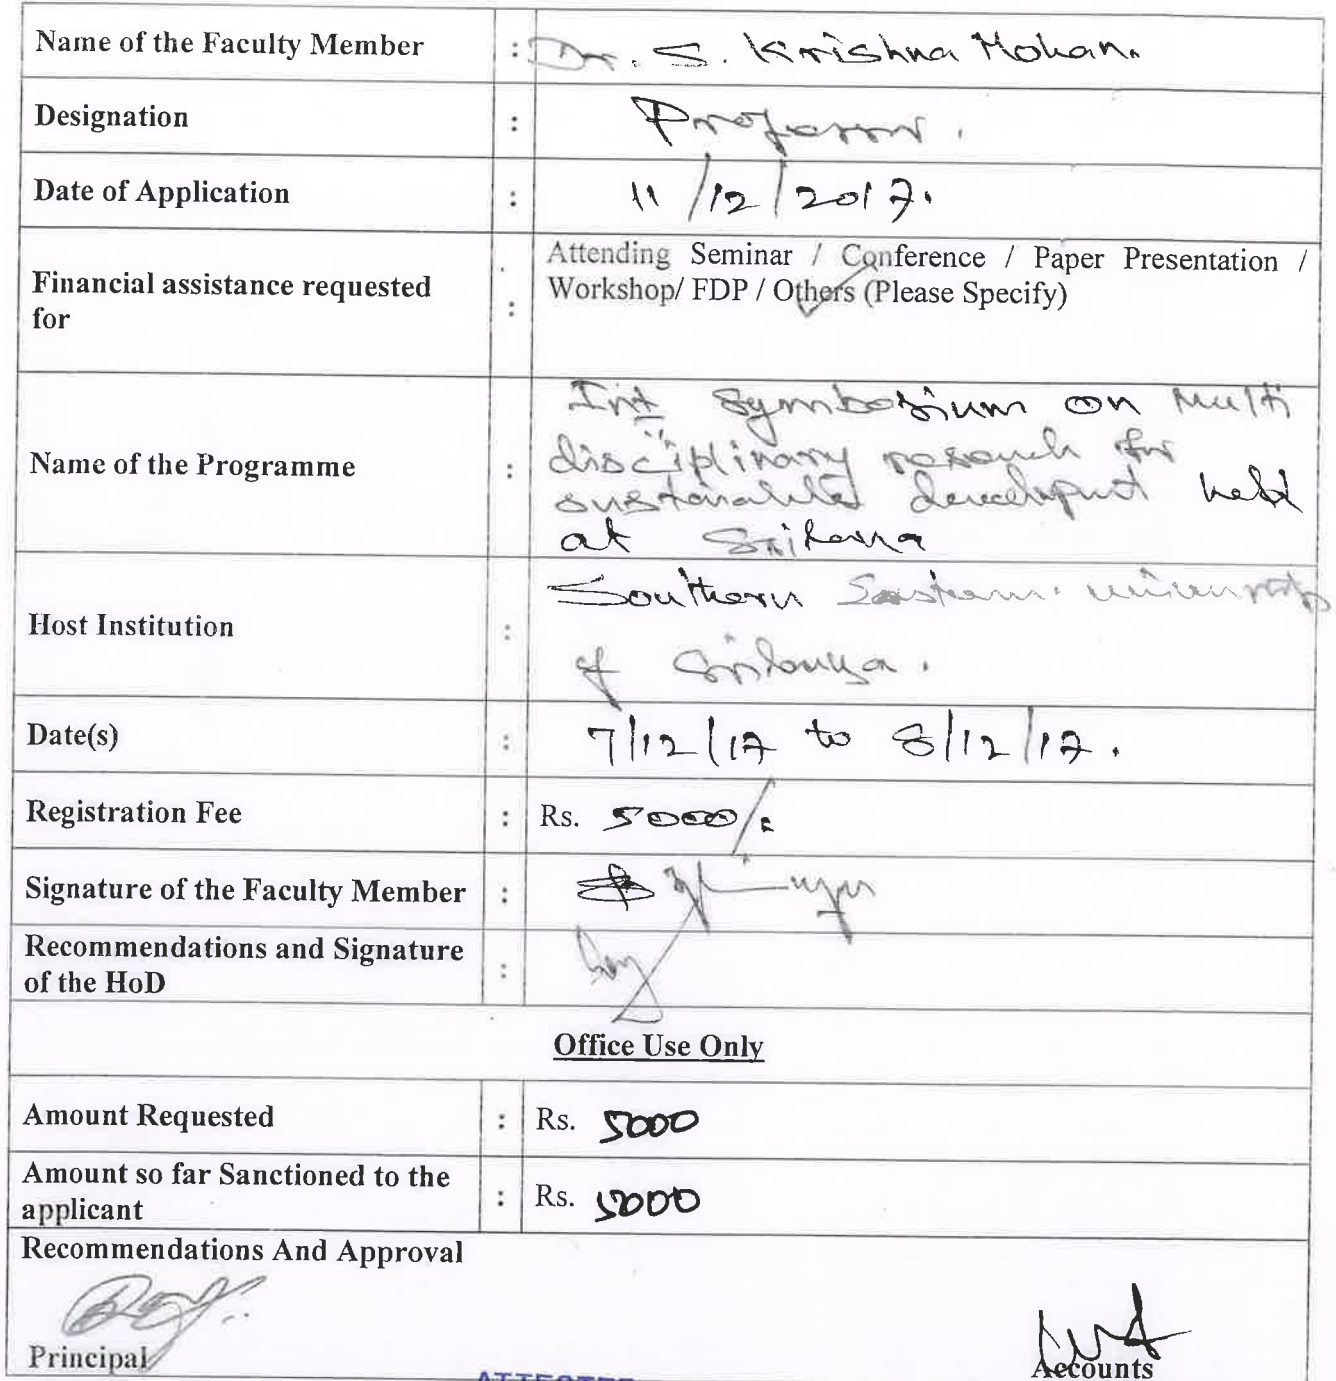 Name of the Faculty Member : Dr. S. Krishna Mohan.
Designation : Professor.
Date of Application : 11/12/2017.
Financial assistance requested for : Attending Seminar / Conference / Paper Presentation /
Workshop/ FDP / Others (Please Specify)
Name of the Programme : Int Symbosium on Multi
disciplinary research for
sustanable development held
at
Host Institution : Southern Eastern university
of Srilanka.
Date(s) : 7/12/17 to 8/12/17.
Registration Fee : Rs. 5000/-
Signature of the Faculty Member :
Recommendations and Signature
of the HoD :
Office Use Only
Amount Requested : Rs. 5000
Amount so far Sanctioned to the
applicant : Rs. 5000
Recommendations And Approval
Principal
Accounts
ATTESTED